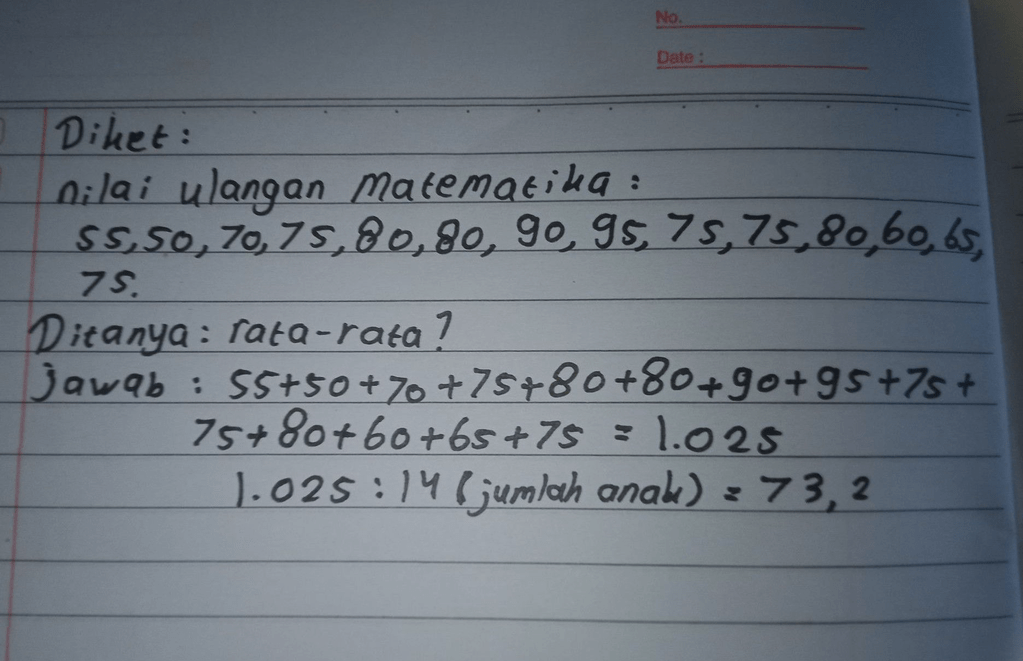 No.
Date :
Diket :
nilai ulangan matematika :
55,50,70,75,80,80, 90, 95, 75,75,80,60,65,
75.
Ditanya : rata-rata?
jawab : 55+50+70+75+80+80+90+95+75+
75+80+60+65+75 = 1.025
1.025 : 14 (jumlah anak) = 73,2